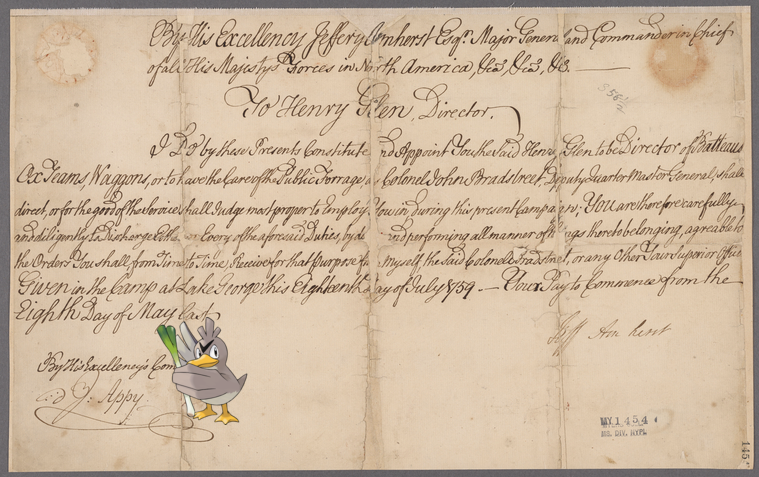 By His Excellency Jeffery Amherst Esqr. Major General and Commander in Chief
of all His Majestys Forces in North America, &ca, &ca, &c.
To Henry Glen, Director.
I Do by these Presents Constitute and Appoint You the Said Henry Glen to be Director of Batteaus
Ox Teams, Waggons, or to have the Care of the Publick Forrage, as Colonel John Bradstreet, Deputy Quarter Master General, shall
direct, or for the good of the Service shall Judge most proper to Employ You in during this present Campaign; You are therefore carefully
and diligently to Discharge or Every of the aforesaid Duties, by and performing all manner of things thereto belonging, agreable to
the Orders You shall from Time to Time, Receive for that purpose from Myself, the Said Colonel Bradstreet, or any Other Your Superior Officers
Given in the Camp at Lake George this Eighteenth Day of July 1759. — Your Pay to Commence from the
Eighth Day of May last
Jeff Amherst
By His Excellency's Com
J: Appy.
1454
MS. DIV. NYPL
145